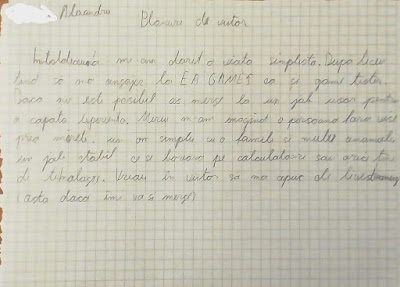 Alexandru
Planuri de viitor
Întotdeauna mi-am dorit o viață simplistă. După liceu
simt să mă angajez la EA GAMES ca și game tester.
Daca nu este posibil as merge la un job usor pentru
a capata experienta. Mereu m-am imaginat o persoana fara vise
prea marete. un om simplu cu o familie si multe animale
un job stabil ce se bazeaza pe calculatoare sau orice tine
de tehnologie. Vreau in viitor sa ma apuc de livestreaming
(asta daca imi va si merge)